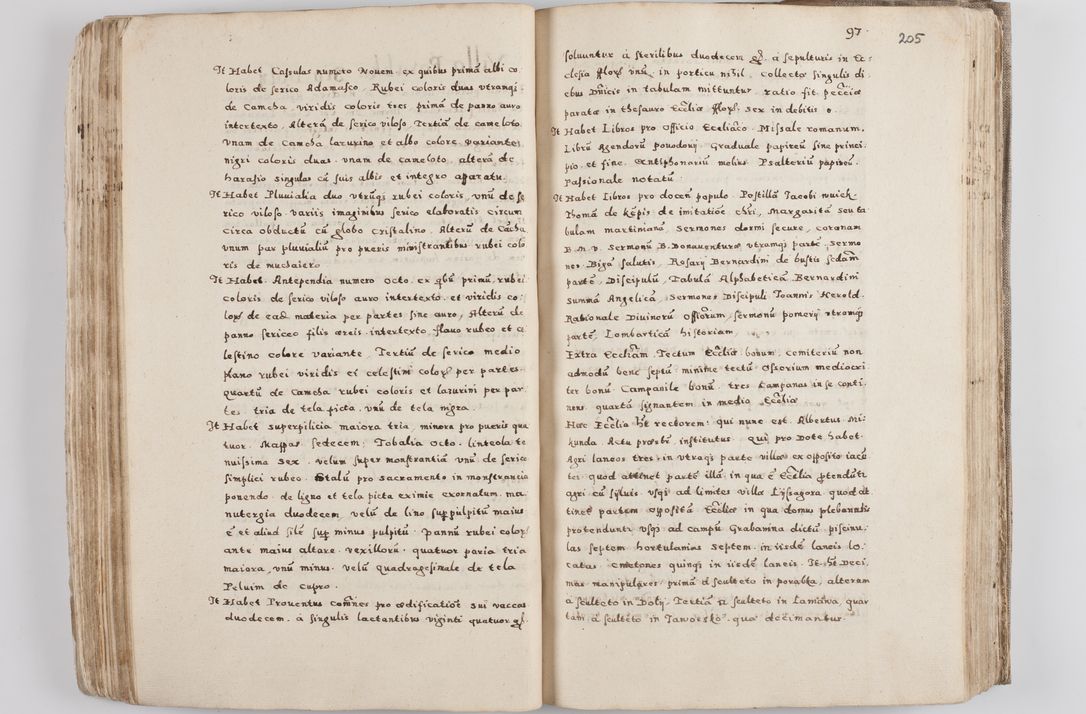 It Habet Casulas numero Nouem ex quibus primā albi co
loris de serico Adamasco. Rubei coloris duas vtranq́
de Camcha. viridis coloris tres primā de panno auro
intertexto, Alterā de serico viloso, Tertiā de cameloto
vnam de Camcha lazurino et albo colore variantes
nigri coloris duas. vnam de cameloto, alterā de
harasio singulas cū suis albis et integro apparatu.
It Habet Pluuialia duo vtrūq́ rubei coloris, vnū de se
rico viloso variis imaginibus serico elaboratis circum
circa obductū cū globo cristalino. Alterū de Cācha
vnum par pluuialiū pro pueris ministrantibus rubei colo
ris de muchaiero
It Habet. Antependia numero octo. ex qbū primū, rubei
coloris de serico viloso auro intertexto. et viridis co,
lor de eađ materia per partes sine auro, Alterū de
panno sericeo filis æreis intertexto, flauo rubeo et c
lestino colore variante, Tertiū de serico medio
plano rubei viridis et celestini color per partes
quartū de Camcha rubei coloris et lazurini per par
tes. tria de tela picta. vnū de tela nigra.
It Habet superpilicia maiora tria, minora pro pueris qua
tuor. Mappas sedecem, Tobalia octo. linteola te
nuissima sex. velum super monstrantiā vnū de serico
simplici rubeo. Stalū pro sacramento in monstrancia
ponendo de ligno et tela picta eximie exornatum. ma,
nutergia duodecem. velū de lino sup pulpitū maius
ē et aliud silē sup minus pulpitū. Pannū rubei color
ante maius altare. vexillorū. quatuor paria tria
maiora, vnū minus. velū quadragesimale de tela
Peluim de cupro.
It Habet Prouentus com̄nes pro ædificatiōē sui vaccas
duodecem. à singulis lactantibus viginti quatuor
97.
205
soluuntur à sterilibus duodecem à sepulturis in Ec
clesia vnū, in porticu nihil. collecta singulis di
ebus Dn̄icis in tabulam mittuntur ratio fit
paratæ in thesauro Eccliæ sex in debitis o.
It Habet Libros pro officio Eccliāco. Missale romanum.
Librū Agendorū Graduale papireū sine princi,
pio et fine. Antiphonariū melius. Psalteriū papireū.
Passionale notatū
It Habet Libros pro docēn populo. Postillā Jacobi wuiek.
Thomā de kēpis de imitatiōe chri, Margaritā seu ta
bulam martinianā. Sermones dormi secure, coronam
B. M. v. Sermonū B. Bonauenturæ vtramq́ partē. Sermo
nes. Bigā salutis, Rosarij Bernardini de bustis scdam
partē, Discipulū, Tabulā Alphabeticā Bernardini
summā Angelicā, sermones Discipuli Joannis Herold.
Rationale Diuinorū officiorum, sermonū pomerij vtramq́
partē, Lombarticā historiam,
Extra Eccliam. Tectum Eccliæ bonum, cemiteriū non
admodū bene septū minime tectū Ossorium mediocri
ter bonū Campanile bonū. tres Campanas in se conti,
nens. quartā signantem in medio Eccliæ
Hæc Ecclia ht rectorem: qui nunc est Albertus Mi,
kunda. Actu præsbr, institutus. Qui pro Dote habet.
Agri laneos tres in vtraq́ parte villæ ex opposito iacē
tes. quod attinet partē illā in qua ē Ecclia ptendūt
agri cū syluis vsq́ ad limites villæ Lyssagora. quod at
tinet partem oppositā Eccliæ in qua domus plebanalis
protendunt vsq́ ad campū Grabanina dictū piscinu,
las septem hortulanias septem in iisdē laneis lo,
catas. cmetones quinq́ in iisdē laneis. It ht Deci,
mas manipulares primā à sculteto in poræbka, alteram
à sculteto in Doly. Tertiā à sculteto in Lamana, quar
tam à sculteto in Jaworsko. quæ decimantur.